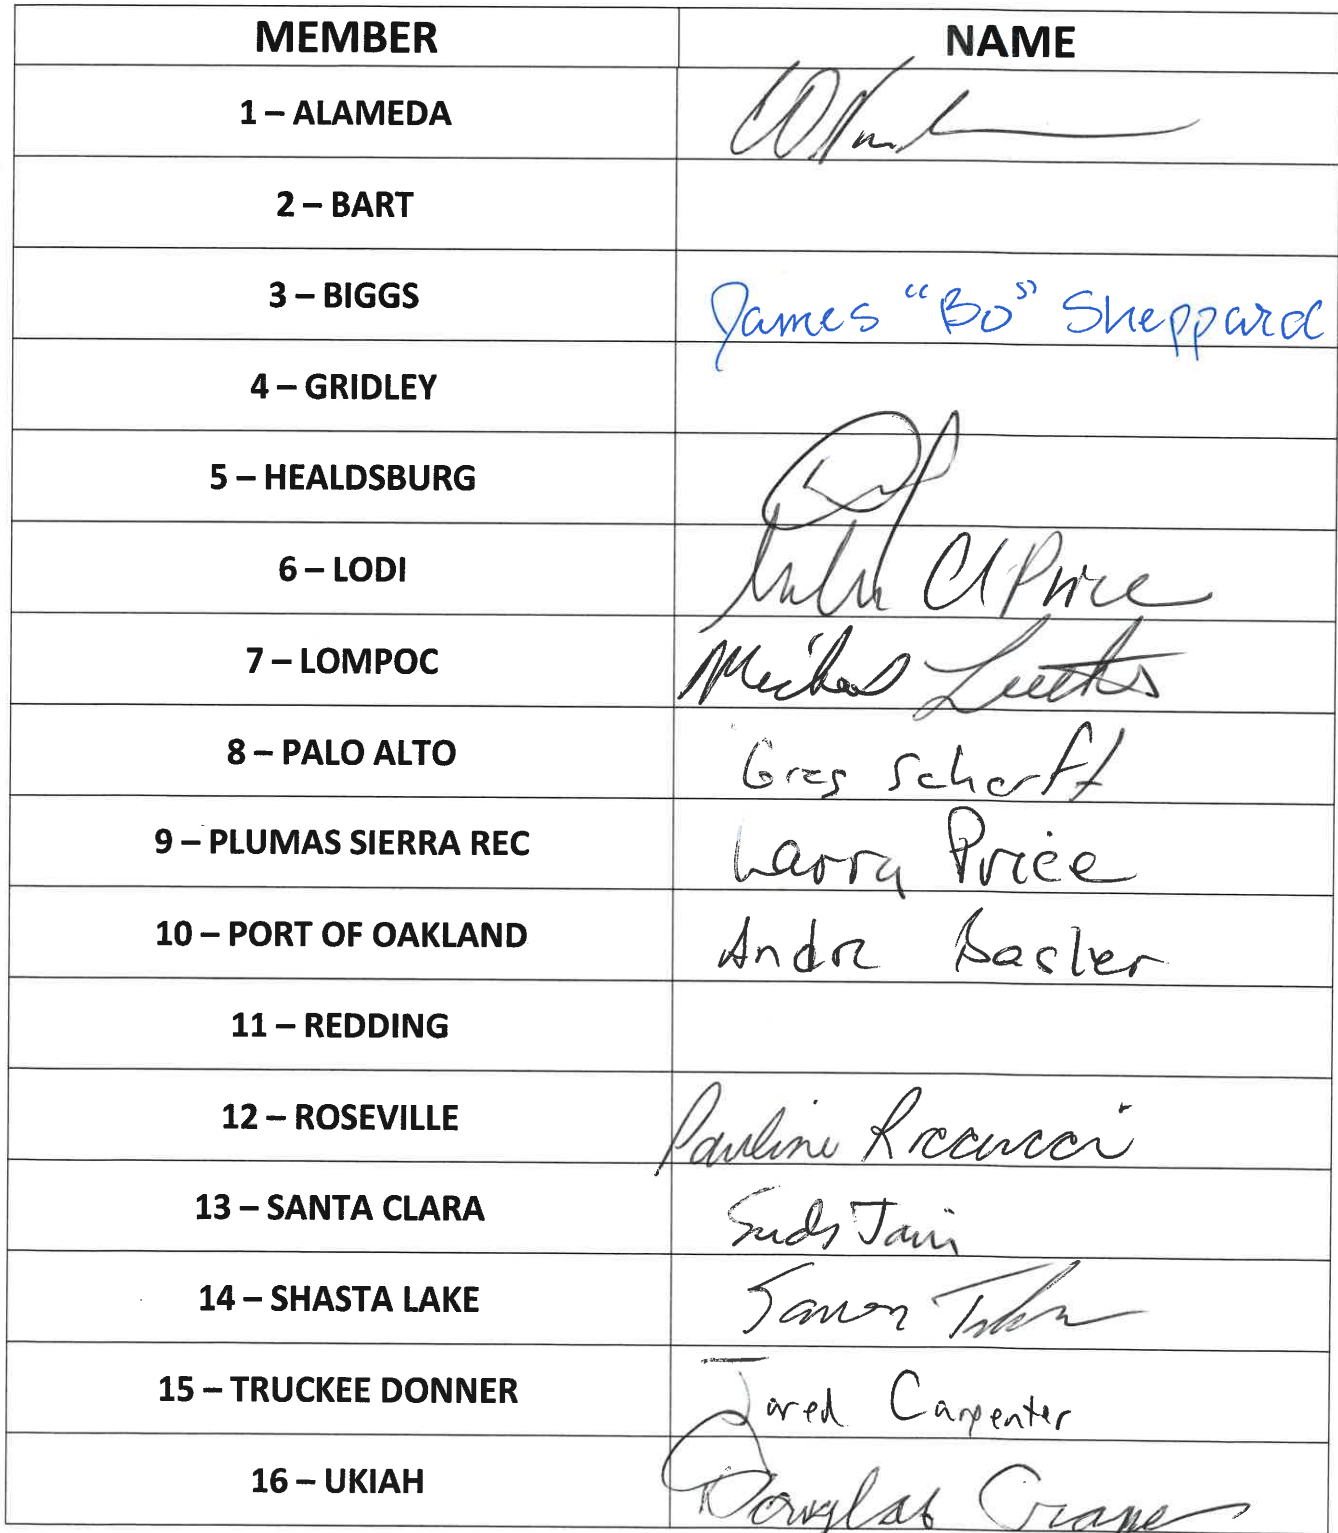 MEMBER NAME
1 – ALAMEDA
2 – BART
3 – BIGGS James "Bo" Sheppard
4 – GRIDLEY
5 – HEALDSBURG
6 – LODI Price
7 – LOMPOC Michael
8 – PALO ALTO Greg Scharff
9 – PLUMAS SIERRA REC Larry Price
10 – PORT OF OAKLAND Andre Basler
11 – REDDING
12 – ROSEVILLE Pauline Roccucci
13 – SANTA CLARA Suds Jain
14 – SHASTA LAKE
15 – TRUCKEE DONNER Jared Carpenter
16 – UKIAH Douglas Crane